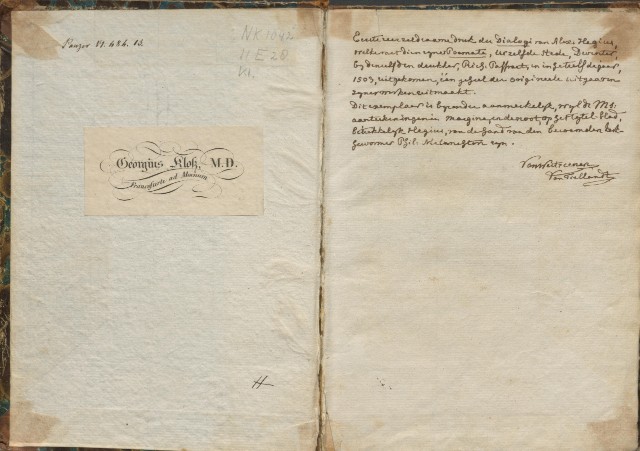 Panzer VI. 484. 13.
NK 1042
II E 28
Georgius Kloß, M.D.
Francofurti ad Moenum
H
Eerste zeer zeldzaame druk der Dialogi van Alex. Hegius,
welke met die in zyne Poemata, ter zelfde stede, Deventer,
by denzelfden drukker, Rich. Paffraet, en in hetzelfde jaar,
1503, uitgekomen, één geheel der origineele uitgaaven
zyner werken uitmaakt.
Dit exemplaar is byzonder aanmerkelyk, wyl de MS.
aanteekeningen in margine, en de noot, op het tytel-blad,
betrekkelyk Hegius, van de hand van den beroemden kerk-
hervormer Phil. Melanchton zyn.
Van Westreenen
Van Tiellandt